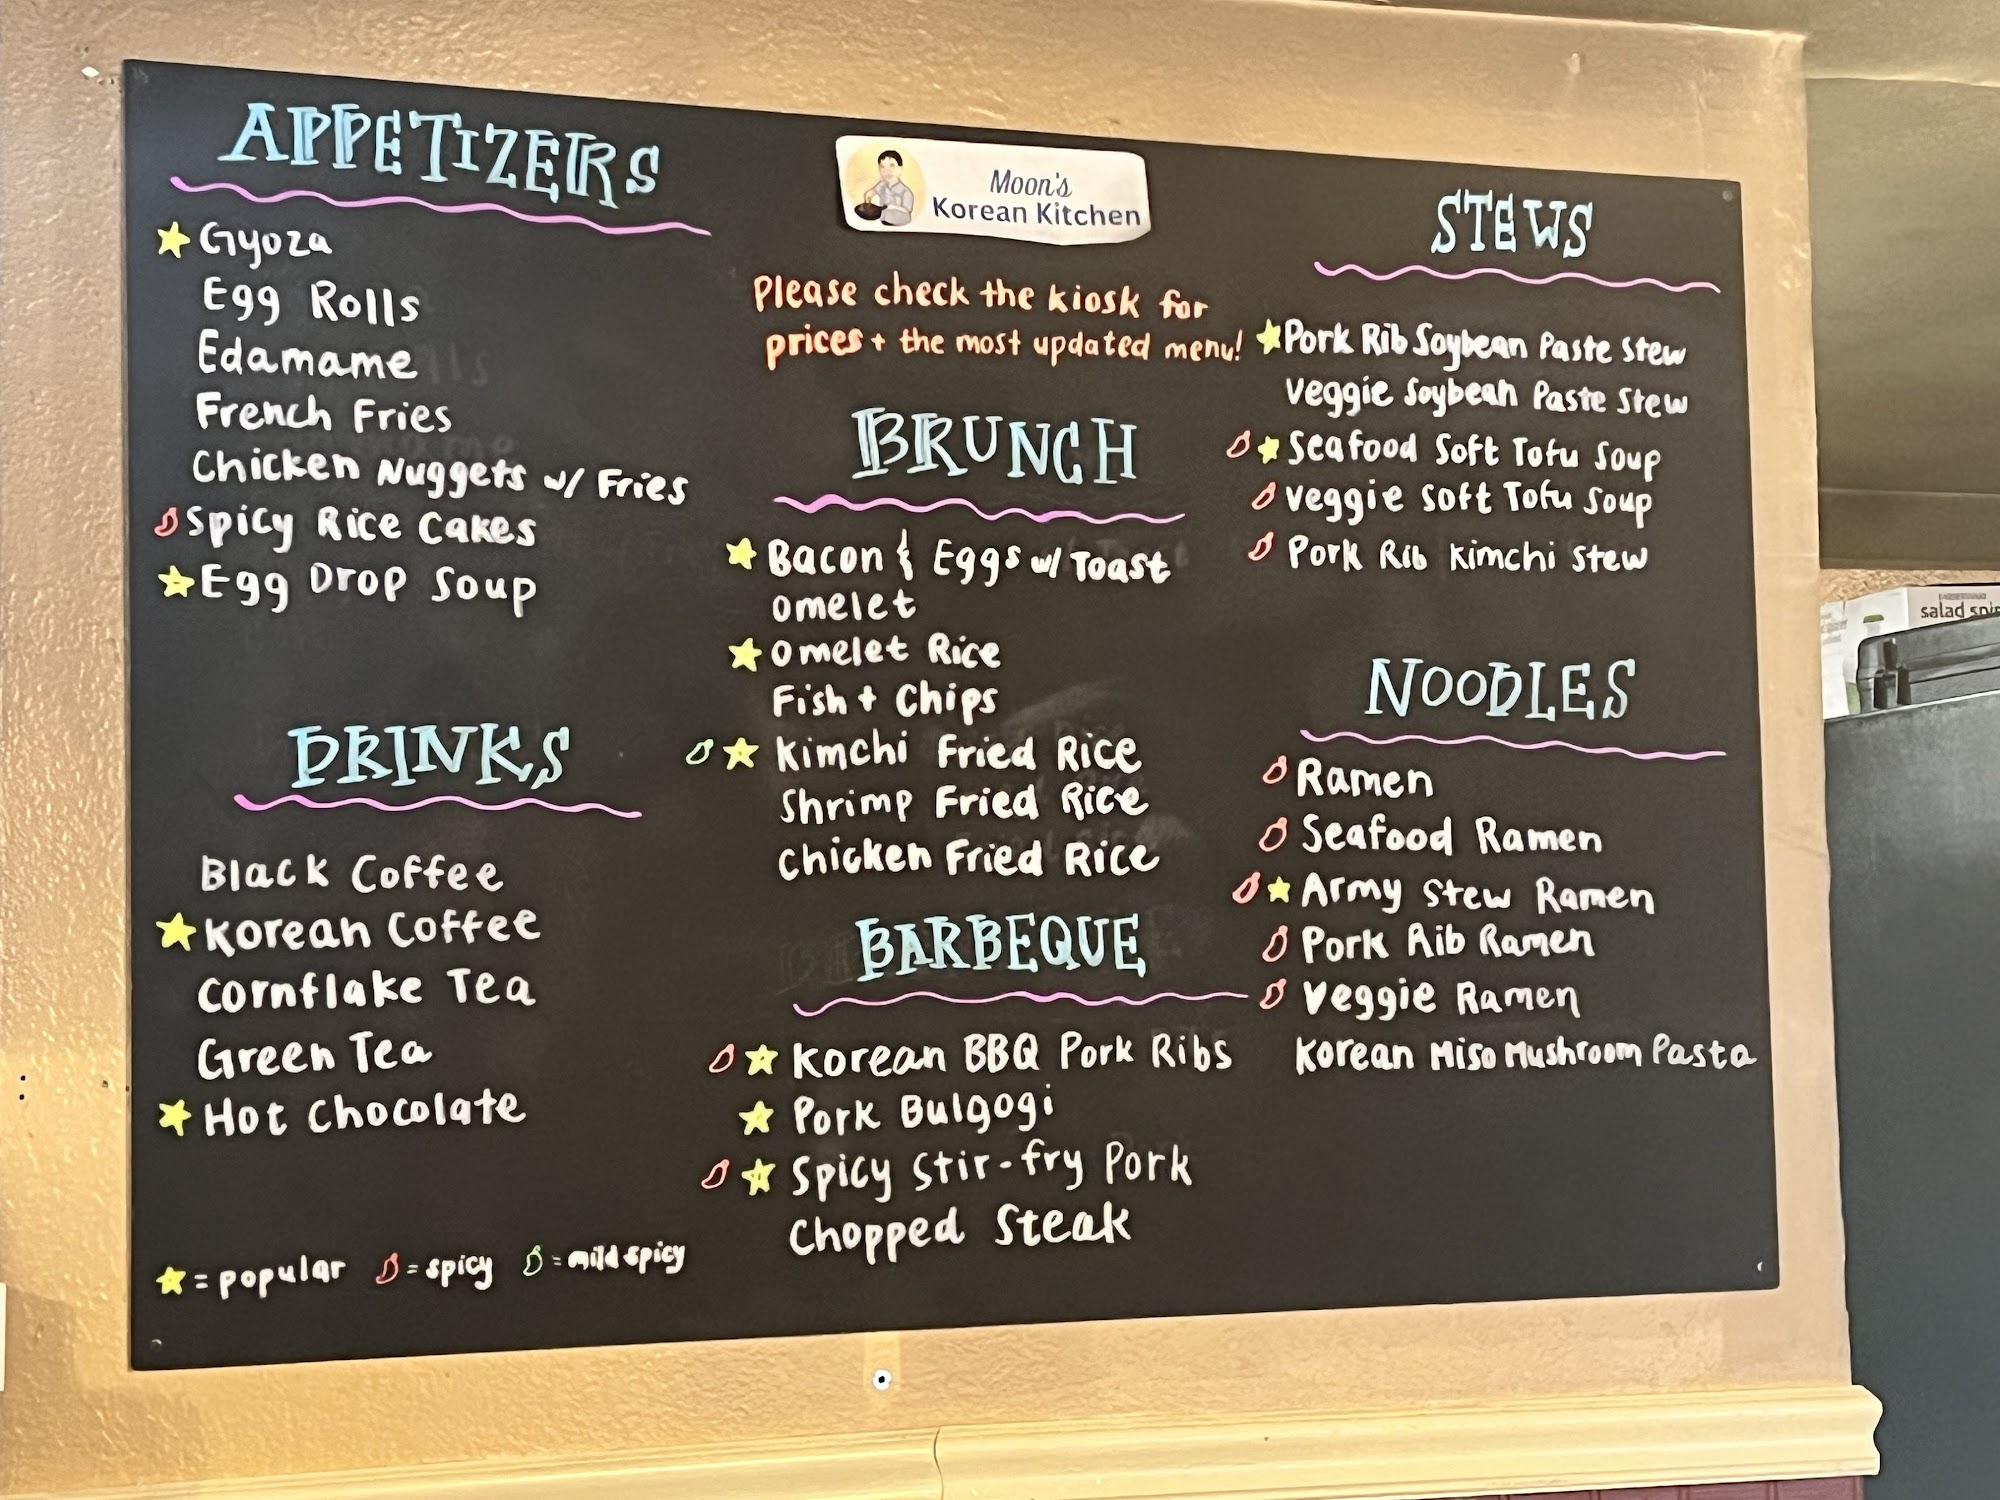 APPETIZERS
Gyoza
Egg Rolls
Edamame
French Fries
Chicken Nuggets w/ Fries
Spicy Rice Cakes
Egg Drop Soup
DRINKS
Black Coffee
Korean Coffee
Cornflake Tea
Green Tea
Hot Chocolate
= popular = spicy = mild spicy
Moon's
Korean Kitchen
Please check the kiosk for
prices + the most updated menu!
BRUNCH
Bacon & Eggs w/ Toast
Omelet
Omelet Rice
Fish + Chips
Kimchi Fried Rice
Shrimp Fried Rice
Chicken Fried Rice
BARBEQUE
Korean BBQ Pork Ribs
Pork Bulgogi
Spicy Stir-fry Pork
Chopped Steak
STEWS
Pork Rib Soybean Paste Stew
Veggie Soybean Paste Stew
Seafood Soft Tofu Soup
Veggie Soft Tofu Soup
Pork Rib Kimchi Stew
NOODLES
Ramen
Seafood Ramen
Army Stew Ramen
Pork Rib Ramen
Veggie Ramen
Korean Miso Mushroom Pasta
salad